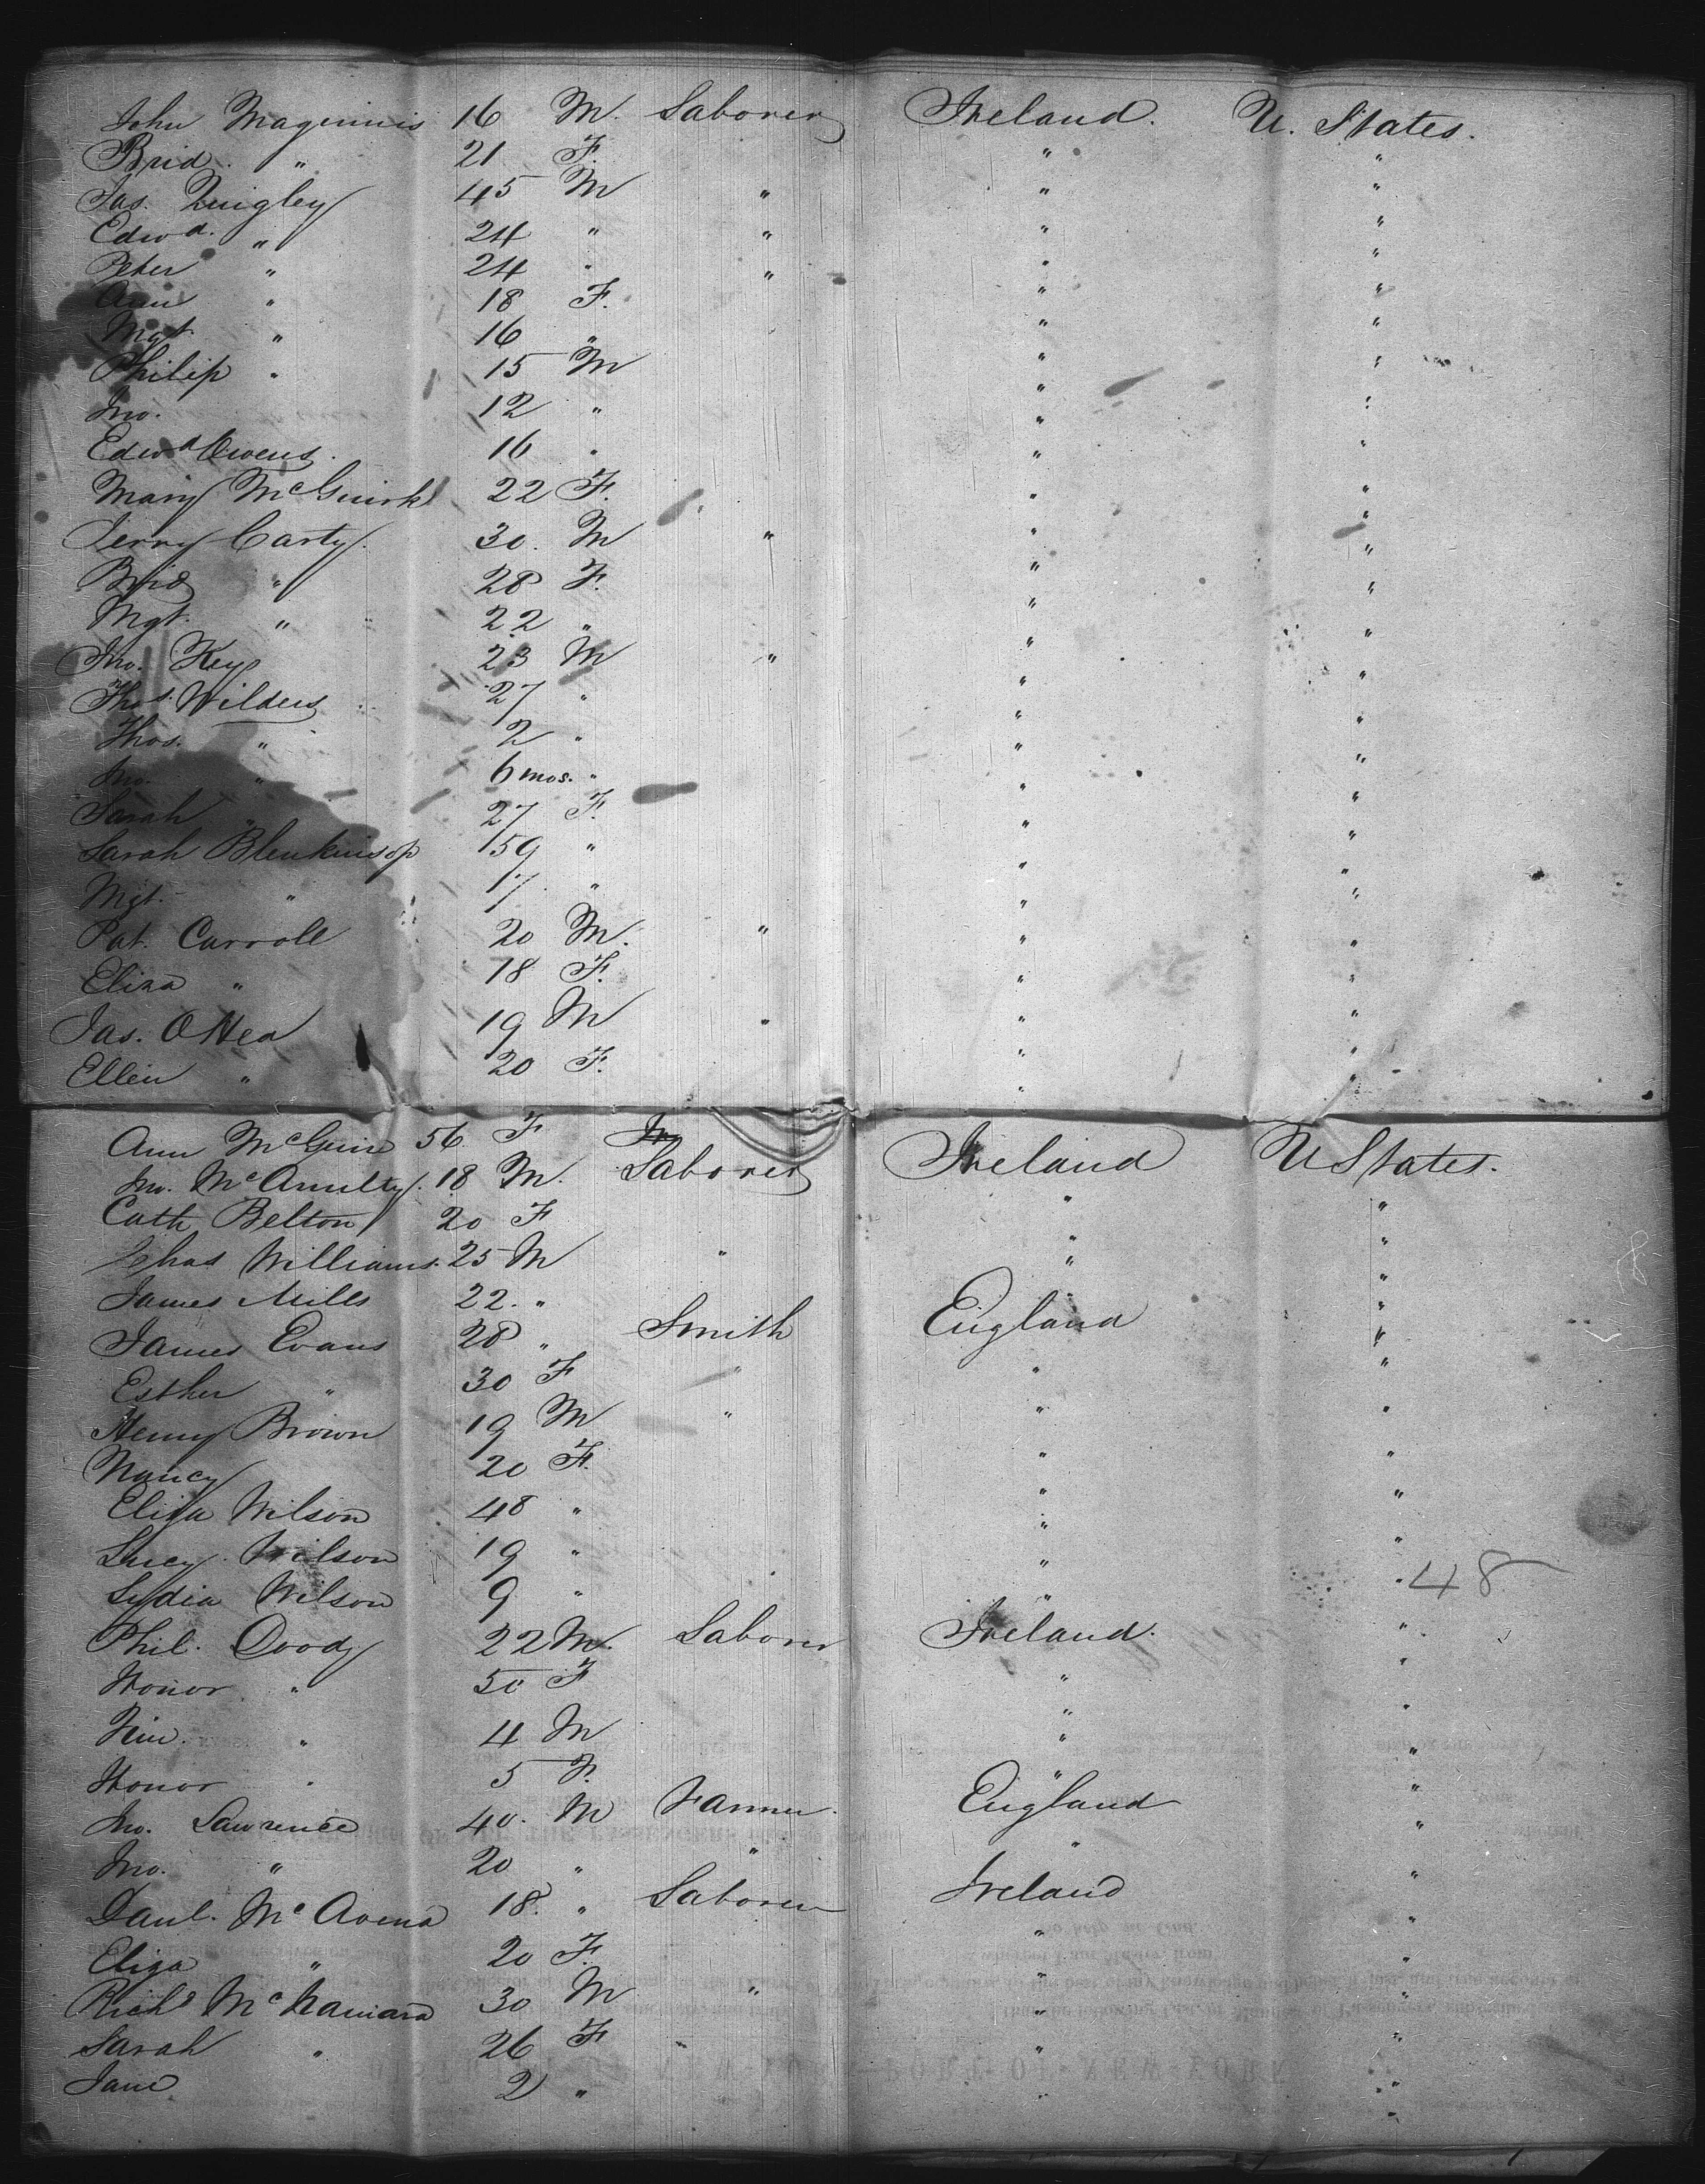 John Magennis 16 M. Laborer Ireland. U. States.
Brid. " 21 F. " "
Jas. Quigley 45 M " " "
Edwd. " 24 " " " "
Peter " 24 " " " "
Ann " 18 F. " "
Mgt. " 16 " " "
Philip " 15 M " "
Jno. 12 " " "
Edwd Owens. 16 " " "
Mary McGuirk 22 F. " "
Jerry Carty. 30. M " " "
Brid " 28 F. " "
Mgt. " 22 " " "
Jno. Keys 23 M " " "
Thos. Wilders 27 " " "
Thos. " 2 " " "
Jno. " 6 mos. " " "
Sarah " 27 F. " "
Sarah Blenkinsop 59 " " "
Mgt. " 17 " " "
Pat. Carroll 20 M. " " "
Eliza " 18 F. " "
Jas. OHea 19 M " " "
Ellen " 20 F. " "
Ann McGuire 56 F Ireland U States.
Jno. McAnulty. 18 M. Laborer " "
Cath Belton 20 F " "
Chas Williams. 25 M " " "
James Mills 22. " " "
James Evans 28 " Smith England "
Esther " 30 F " " "
Henry Brown 19 M " " "
Nancy 20 F. " "
Eliza Wilson 48 " " "
Lucy Wilson 19 " " "
Lydia Wilson 9 " " " 48
Phil. Doody 22 M. Laborer Ireland. "
Honor " 50 F " "
" 4 M " "
Honor " 5 F. " "
Jno. Lawrence 40. M Farmer. England "
Jno. " 20 " " " "
Danl. McAvena 18. " Laborer Ireland "
Eliza " 20 F. " "
Richd McNamara 30 M " " "
Sarah " 26 F " "
Jane 2 " " "